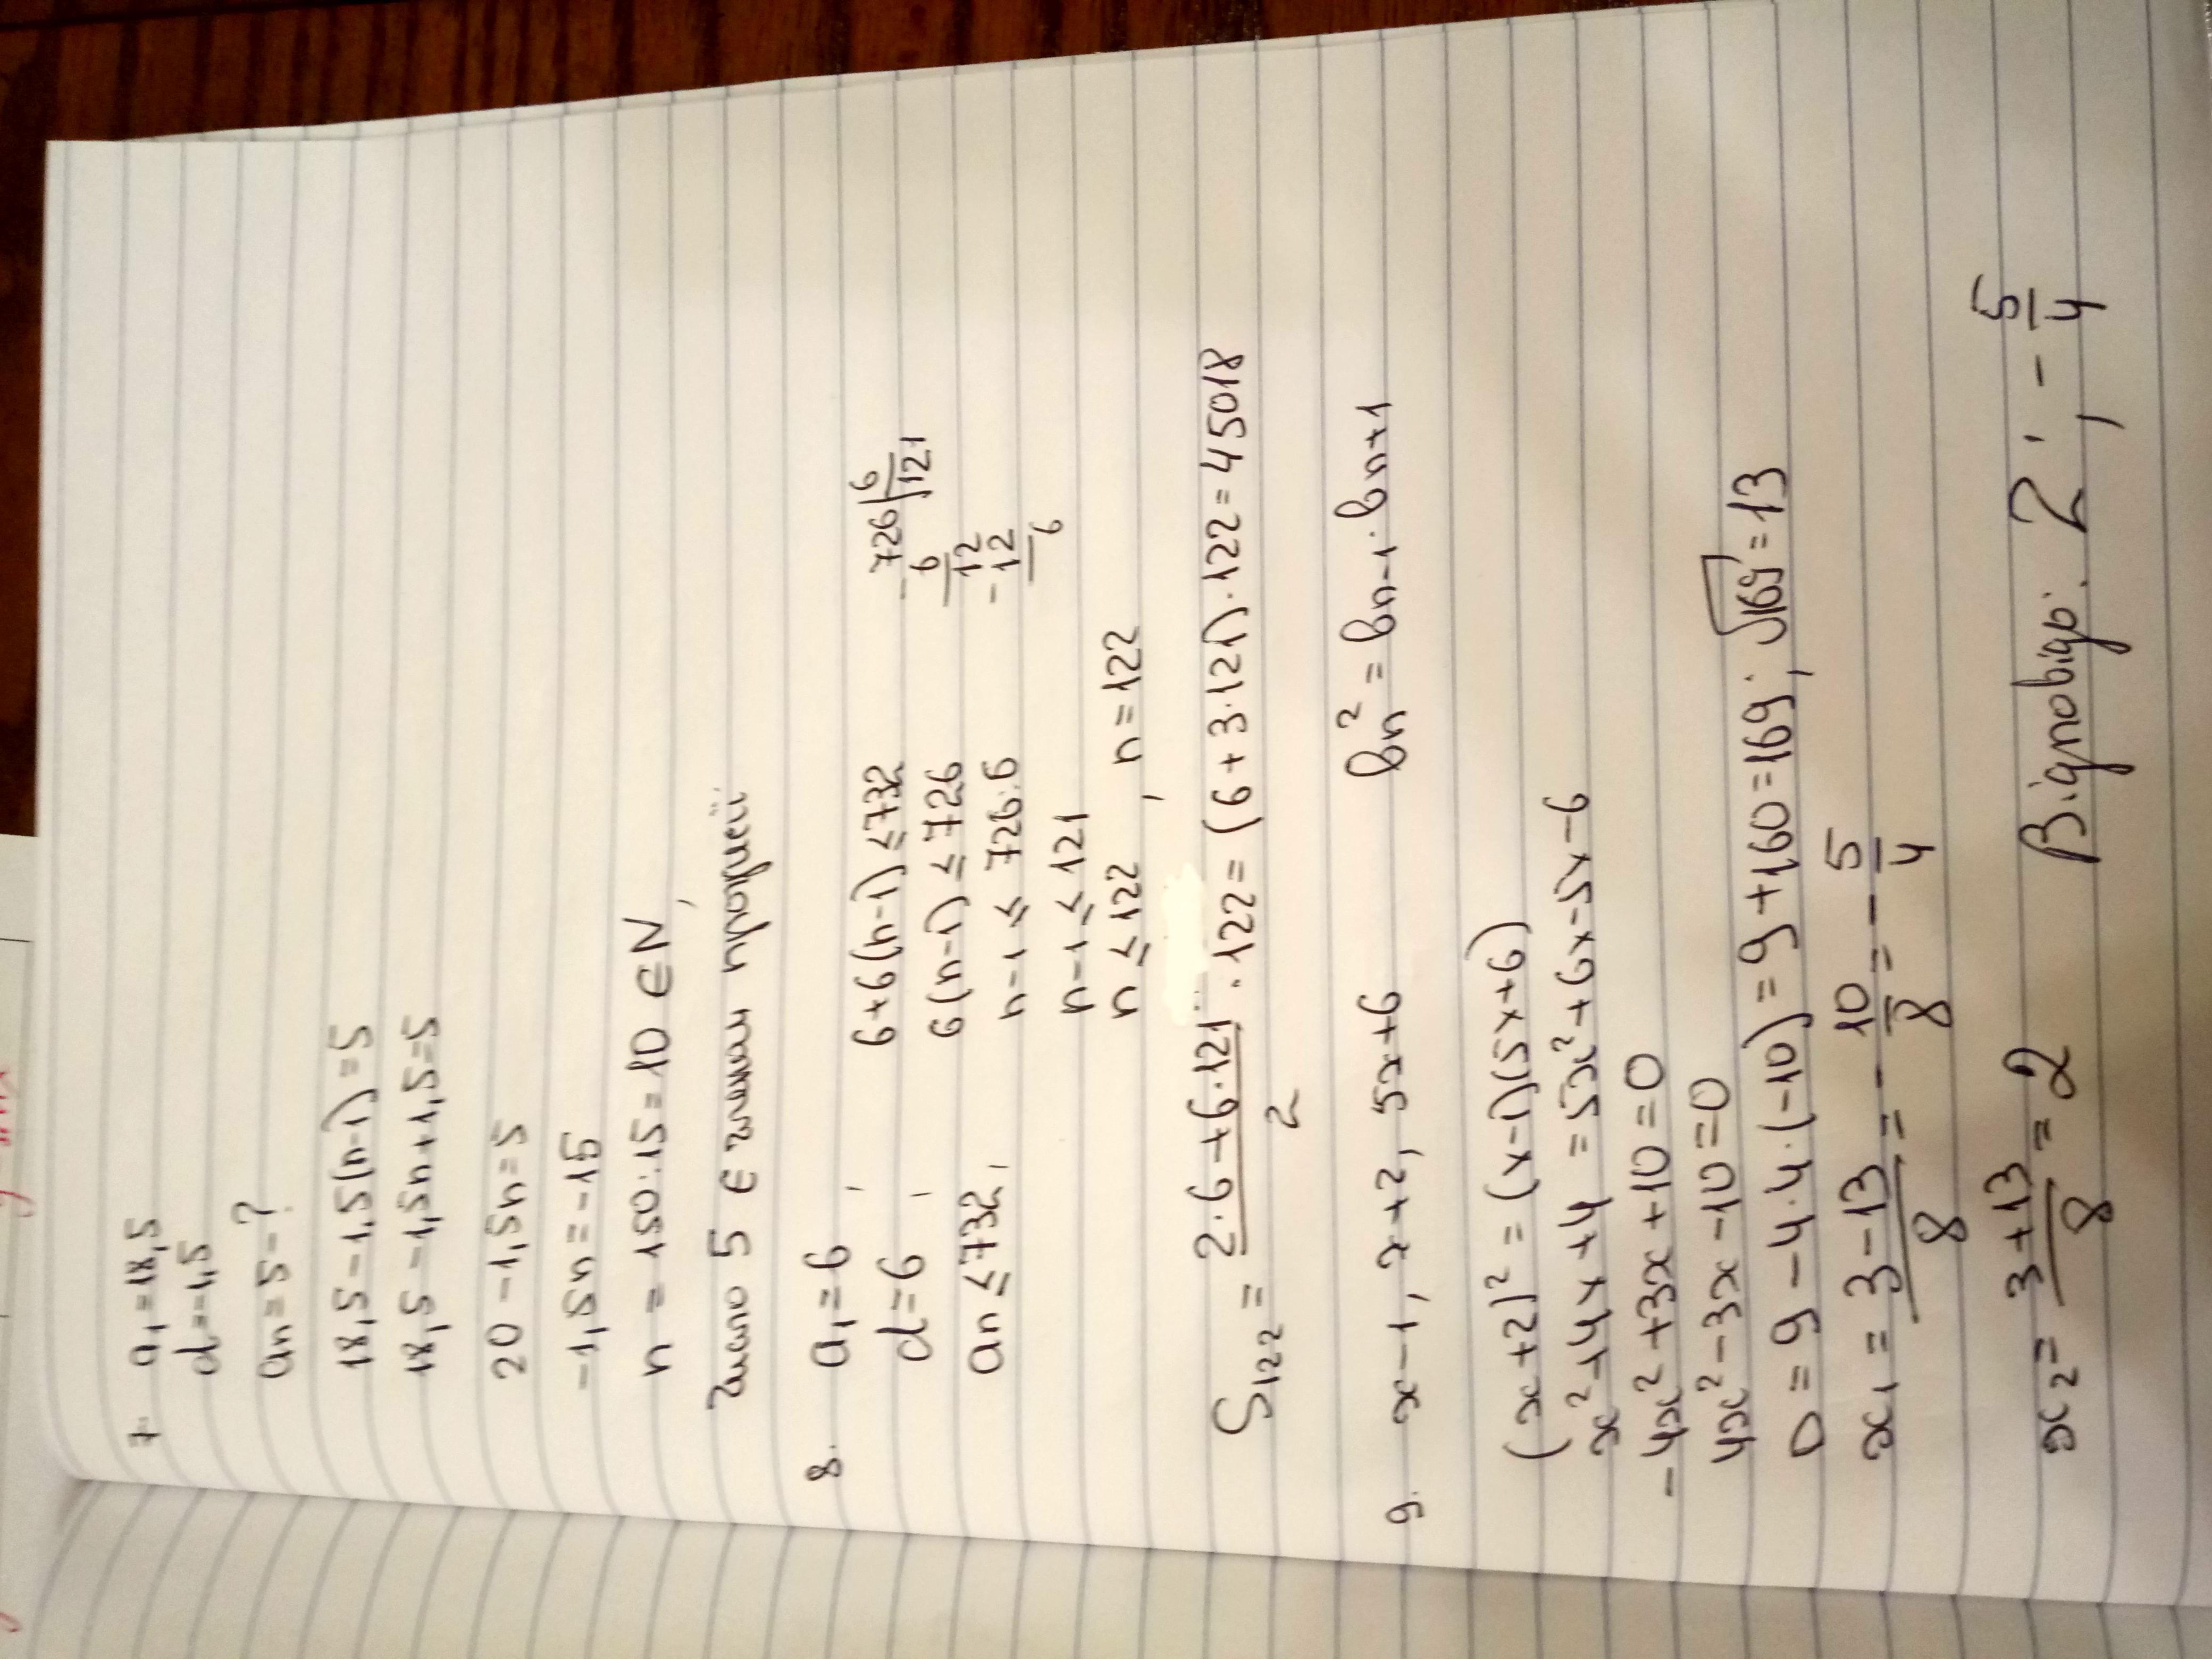 7 a₁=18,5
d=-1,5
an=5-?
18,5-1,5(n-1)=5
18,5-1,5n+1,5=5
20-1,5n=5
-1,5n=-15
n=150:15=10 ∈N,
Число 5 є членом прогресії
8. a₁=6,
d=6,
an≤732,
6+6(n-1)≤732
6(n-1)≤726
n-1≤726:6
n-1≤121
n≤122, n=122
726|6
-6 121
12
-12
6
S₁₂₂ = (2·6+6·121)/2 ·122=(6+3·121)·122=45018
9. x-1, x+2, 5x+6 bn²=bn-1·bn+1
(x+2)²=(x-1)(5x+6)
x²+4x+4=5x²+6x-5x-6
-4x²+3x+10=0
4x²-3x-10=0
D=9-4·4·(-10)=9+160=169; √169=13
x₁=(3-13)/8=-10/8=-5/4
x₂=(3+13)/8=2 Відповідь: 2; -5/4